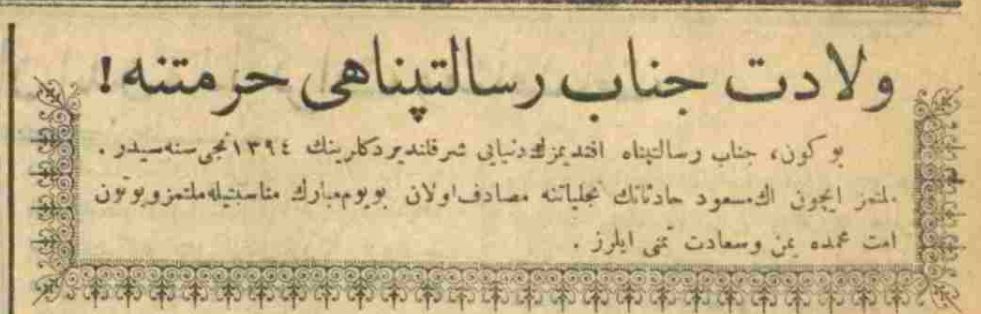 ولادت جناب رسالتپناهی حرمتنه!
بو كون، جناب رسالتپناه افنديمزك دنيايی شرفلنديردكلرينك ١٣٩٤نجی سنه‌سيدر .
ملتمز ايچون اك مسعود حادثاتك تجلياتنه مصادف اولان بو يوم مبارك مناسبتيله ملتمز و بوتون
امت محمده يمن وسعادت تمنی ايلرز .